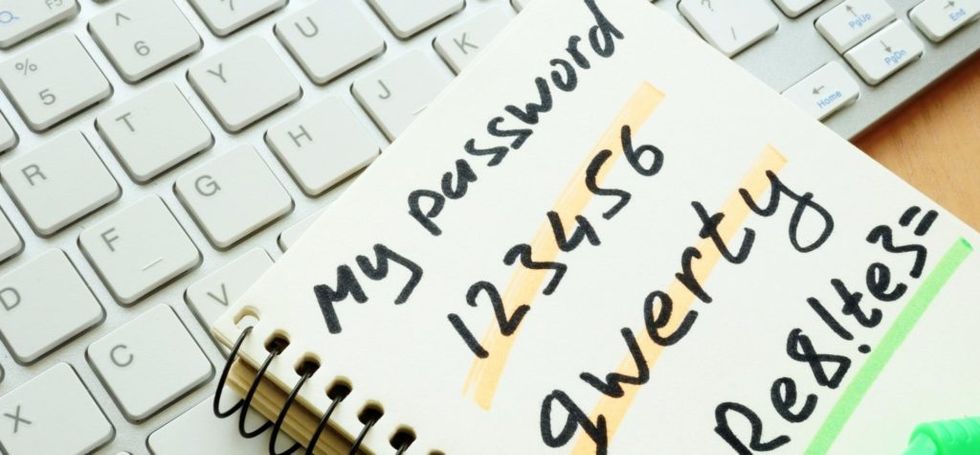 My password
123456
qwerty
Re8!te3=
F5
^
6
U
?
/
PgUp
PgDn
End
Home
%
5
Y
J
K
T
H
R
G
F
D
V
C
X